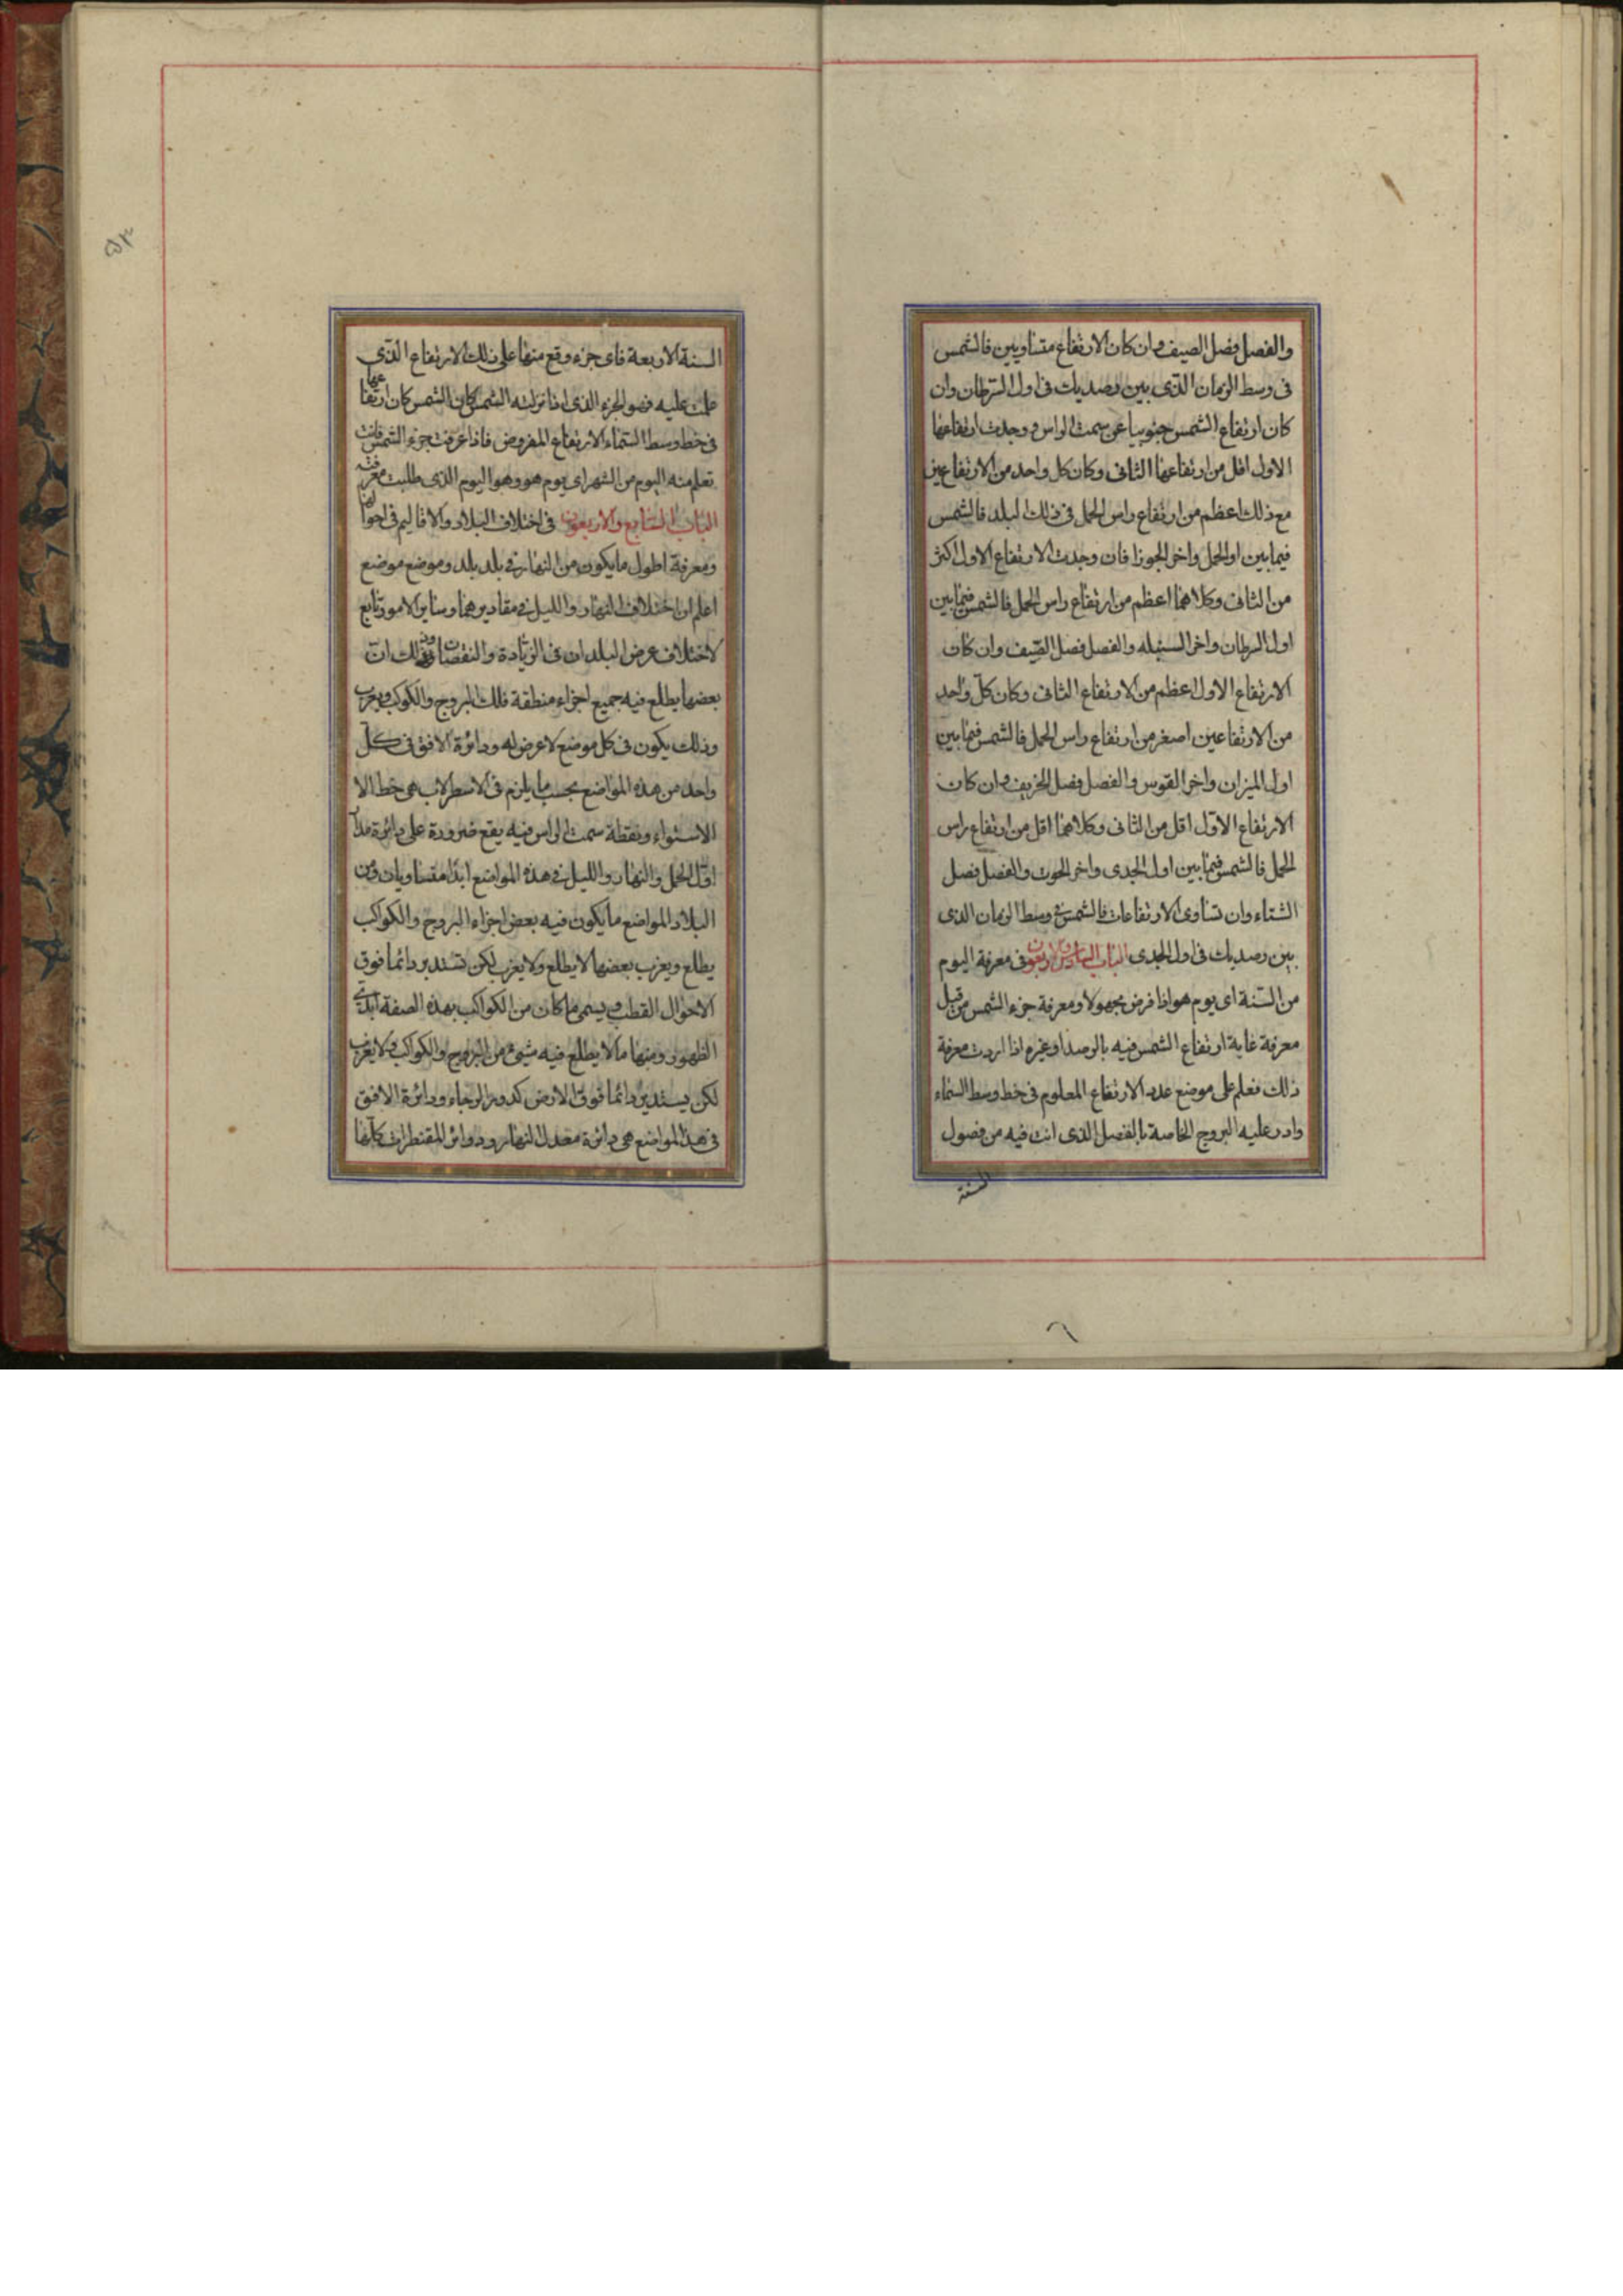 والفصل فصل الصيف وان كان الارتفاع متساويين فالشمس
فى وسط الزمان الذى بين رصديك فى اول السرطان وان
كان ارتفاع الشمس جنوبيا عن سمت الراس ووجدت ارتفاعها
الاول اقل من ارتفاعها الثانى وكان كل واحد من الارتفاعين
مع ذلك اعظم من ارتفاع راس الحمل فى ذلك البلد فالشمس
فيما بين اول الحمل واخر الجوزا فان وجدت الارتفاع الاول اكثر
من الثانى وكلاهما اعظم من ارتفاع راس الحمل فالشمس فيما بين
اول السرطان واخر السنبله والفصل فصل الصيف وان كان
الارتفاع الاول اعظم من الارتفاع الثانى وكان كل واحد
من الارتفاعين اصغر من ارتفاع راس الحمل فالشمس فيما بين
اول الميزان واخر القوس والفصل فصل الخريف وان كان
الارتفاع الاول اقل من الثانى وكلاهما اقل من ارتفاع راس
الحمل فالشمس فيما بين اول الجدى واخر الحوت والفصل فصل
الشتاء وان تساوى الارتفاعات فالشمس فى وسط الزمان الذى
بين رصديك فى اول الجدى الباب السادس والاربعون فى معرفة اليوم
من السنة اى يوم هو اذا فرض مجهولا ومعرفة جزء الشمس من قبل
معرفة غاية ارتفاع الشمس فيه بالرصد او غيره اذا اردت معرفة
ذلك فعلم على موضع عدد الارتفاع المعلوم فى خط وسط السماء
وادر عليه البروج الخاصة بالفصل الذى انت فيه من فصول
السنة
السنة الاربعة فاى جزء وقع منها على ذلك الارتفاع الذى
علمت عليه فهو الجزء الذى اذا نزلته الشمس كان ارتفاعها
فى خط وسط السماء الارتفاع المفروض فاذا عرفت جزء الشمس فانت
تعلم منه اليوم من الشهر اى يوم هو وهو اليوم الذى طلبت معرفته
الباب السابع والاربعون فى اختلاف البلاد والاقاليم فى احوالها
ومعرفة اطول ما يكون من النهار فى بلد بلد وموضع موضع
اعلم ان اختلاف النهار والليل فى مقاديرهما وساير الامور تابع
لاختلاف عرض البلدان فى الزيادة والنقصان وذلك ان
بعضها يطلع فيه جميع اجزاء منطقة فلك البروج والكوكب ويغرب
وذلك يكون فى كل موضع لا عرض له ودائرة الافق فى كل
واحد من هذه المواضع بحسب ما يلزم فى الاسطرلاب هى خط الا
الاستواء ونقطة سمت الراس فيه يقع ضرورة على دائرة مدار
اول الحمل والنهار والليل فى هذه المواضع ابدا متساويان ومن
البلاد المواضع ما يكون فيه بعض اجزاء البروج والكواكب
يطلع ويغرب بعضها لا يطلع ولا يغرب لكن تستدير دائما فوق
الاحوال القطب ويسمى ما كان من الكواكب بهذه الصفة ابدى
الظهور ومنها ما لا يطلع فيه شيئ من البروج والكواكب ولا يغرب
لكن يستدير دائما فوق الارض كدور الرحاء ودائرة الافق
فى هذا المواضع هى دائرة معدل النهار ودوائر المقنطرات كلها